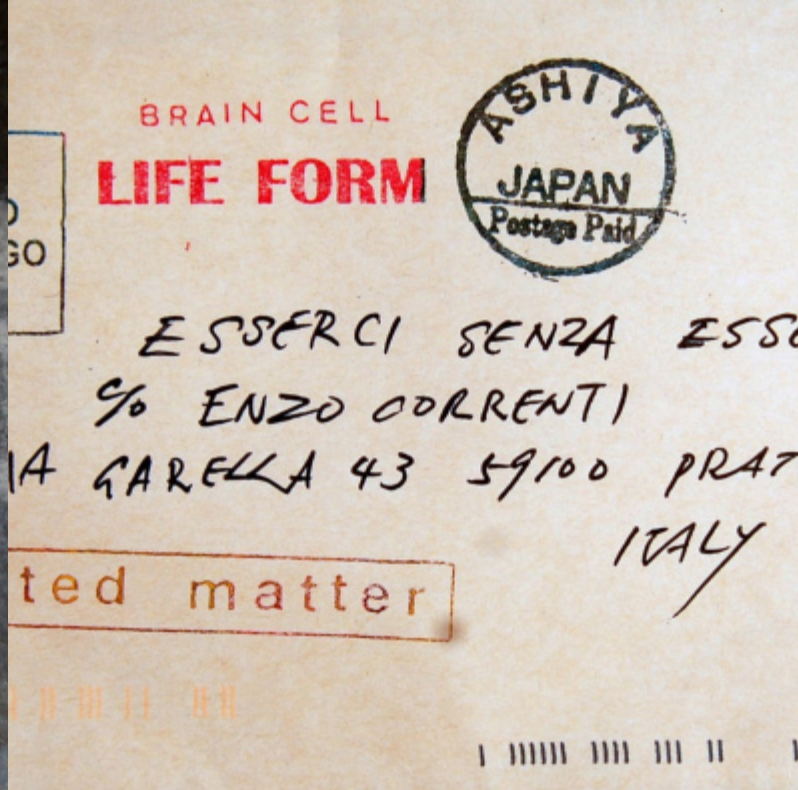 BRAIN CELL
LIFE FORM
ASHIYA
JAPAN
Postage Paid
GO
ESSERCI SENZA ESSE
c/o ENZO CORRENTI
IA GARELLA 43 59100 PRAT
ITALY
ted matter